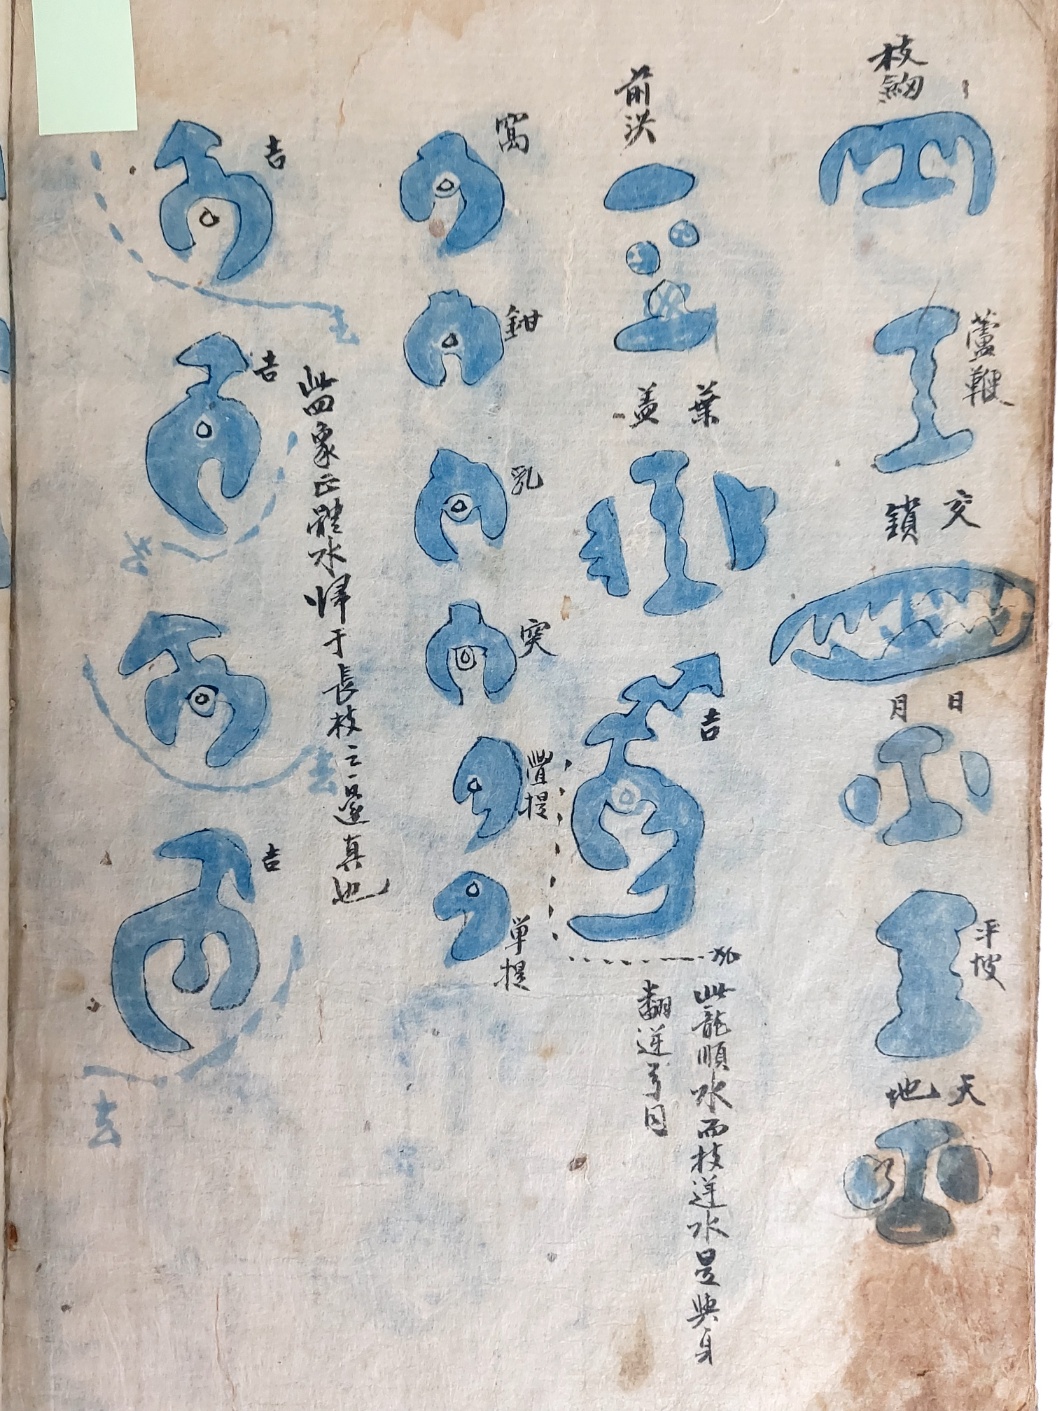 枝
蘆鞭
交
鎖
日
月
平坡
天
地
前洪
葉
盖
吉
此龍順水而枝逆水是與身
翻逆
窩
鉗
乳
突
疊提
単提
此四象正體水歸于長枝之邊真也
吉
去
吉
去
去
吉
去